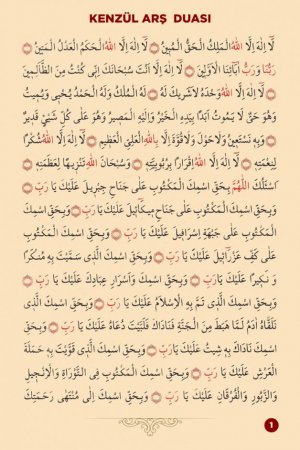 KENZÜL ARŞ DUASI
لَا اِلٰهَ اِلَّا اللهُ الْمَلِكُ الْحَقُّ الْمُبٖينُ لَا اِلٰهَ اِلَّا اللهُ الْحَكَمُ الْعَدْلُ الْمَتٖينُ
رَبُّنَا وَرَبُّ اٰبَٓائِنَا الْاَوَّلٖينَ لَا اِلٰهَ اِلَّا اَنْتَ سُبْحَانَكَ اِنّٖى كُنْتُ مِنَ الظَّالِمٖينَ
لَا اِلٰهَ اِلَّا اللهُ وَحْدَهُ لَاشَرٖيكَ لَهُ لَهُ الْمُلْكُ وَلَهُ الْحَمْدُ يُحْيٖى وَيُمٖيتُ
وَهُوَ حَىٌّ لَا يَمُوتُ اَبَدًا بِيَدِهِ الْخَيْرُ وَاِلَيْهِ الْمَصٖيرُ وَهُوَ عَلٰى كُلِّ شَيْئٍ قَدٖيرٌ
وَبِهٖ نَسْتَعٖينُ وَلَاحَوْلَ وَلَاقُوَّةَ اِلَّا بِاللهِ الْعَلِىِّ الْعَظٖيمِ لَا اِلٰهَ اِلَّا اللهُ شُكْرًا
لِنِعْمَتِهٖ لَا اِلٰهَ اِلَّا اللهُ اِقْرَارًا بِرُبُوبِيَّتِهٖ وَسُبْحَانَ اللهِ تَنْزٖيهًا لِعَظَمَتِهٖ
اَسْئَلُكَ اللّٰهُمَّ بِحَقِّ اسْمِكَ الْمَكْتُوبِ عَلٰى جَنَاحِ جِبْرٖيلَ عَلَيْكَ يَا رَبِّ
وَبِحَقِّ اسْمِكَ الْمَكْتُوبِ عَلٰى جَنَاحِ مٖيكَائٖلَ عَلَيْكَ يَا رَبِّ وَبِحَقِّ اسْمِكَ
الْمَكْتُوبِ عَلٰى جَبْهَةِ اِسْرَافٖيلَ عَلَيْكَ يَا رَبِّ وَبِحَقِّ اسْمِكَ الْمَكْتُوبِ
عَلٰى كَفِّ عَزْرَائٖلَ عَلَيْكَ يَا رَبِّ وَبِحَقِّ اسْمِكَ الَّذٖى سَمَّيْتَ بِهٖ مُنْكَرًا
وَ نَكٖيرًا عَلَيْكَ يَا رَبِّ وَبِحَقِّ اسْمِكَ وَاَسْرَارِ عِبَادِكَ عَلَيْكَ يَا رَبِّ
وَبِحَقِّ اسْمِكَ الَّذٖى تَمَّ بِهِ الْاِسْلَامُ عَلَيْكَ يَا رَبِّ وَبِحَقِّ اسْمِكَ الَّذٖى
تَلَقَّاهُ اٰدَمُ لَمَّا هَبَطَ مِنَ الْجَنَّةِ فَنَادَاكَ فَلَبَّيْتَ دُعَاهُ عَلَيْكَ يَا رَبِّ وَبِحَقِّ
اسْمِكَ نَادَاكَ بِهٖ شٖيثُ عَلَيْكَ يَا رَبِّ وَبِحَقِّ اسْمِكَ الَّذٖى قَوَّيْتَ بِهٖ حَمَلَةَ
الْعَرْشِ عَلَيْكَ يَا رَبِّ وَبِحَقِّ اسْمِكَ الْمَكْتُوبِ فِى التَّوْرَاةِ وَالْاِنْجٖيلِ
وَالزَّبُورِ وَالْفُرْقَانِ عَلَيْكَ يَا رَبِّ وَبِحَقِّ اسْمِكَ اِلٰى مُنْتَهٰى رَحْمَتِكَ
1